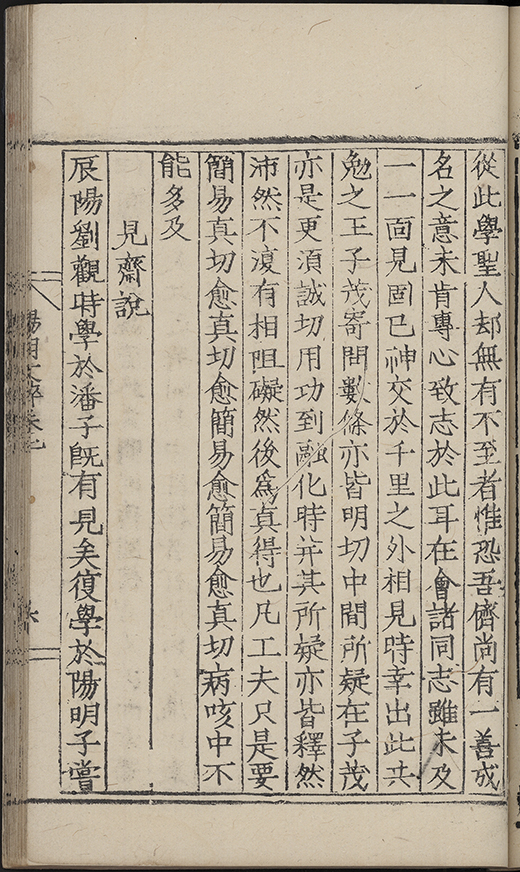 從此學聖人却無有不至者惟恐吾儕尚有一善成
名之意未肯專心致志於此耳在會諸同志雖未及
一一面見固已神交於千里之外相見時幸出此共
勉之王子茂寄問數條亦皆明切中間所疑在子茂
亦是更須誠切用功到融化時并其所疑亦皆釋然
沛然不復有相阻礙然後爲真得也凡工夫只是要
簡易真切愈真切愈簡易愈簡易愈真切病咳中不
能多及
見齋說
辰陽劉觀時學於潘子既有見矣復學於陽明子嘗
陽明文粹卷之